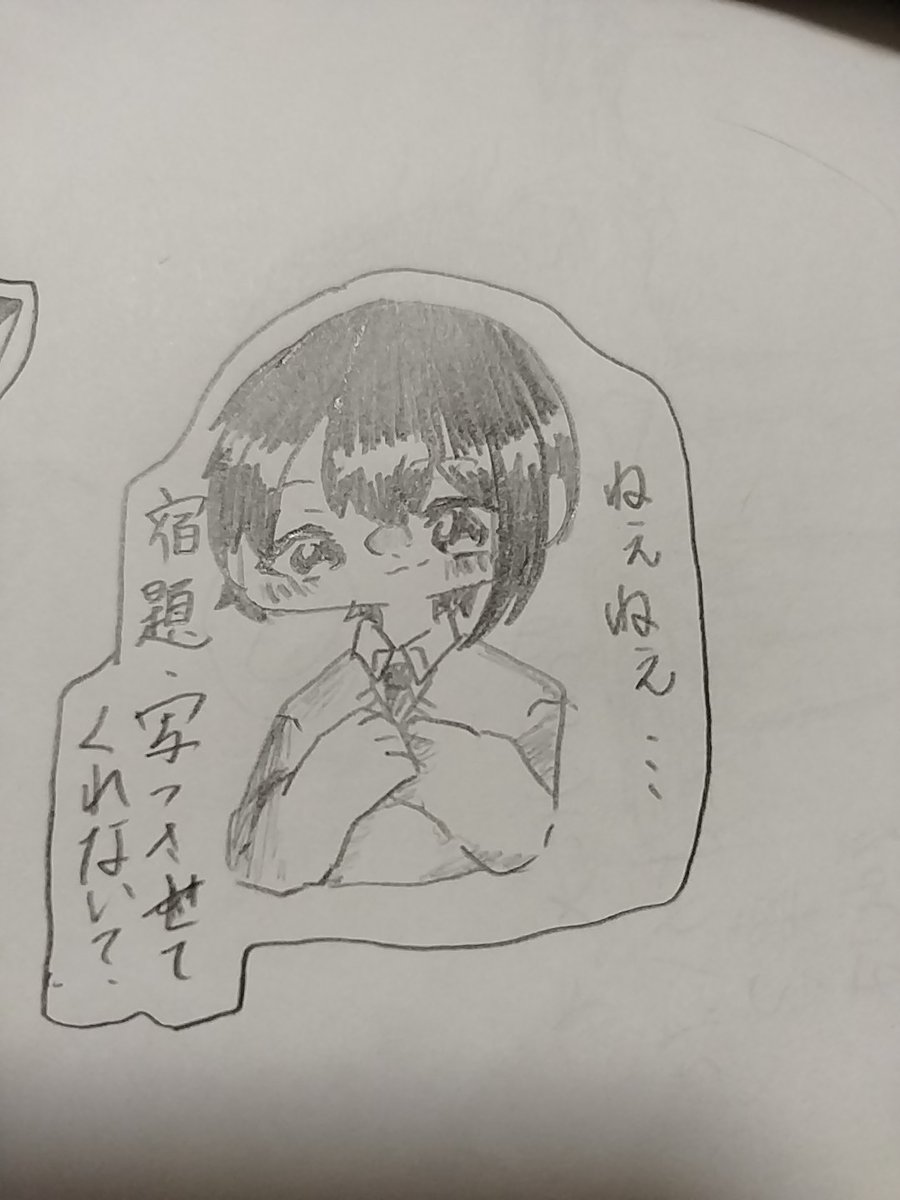 ねぇねぇ…
宿題、写させて
くれない?